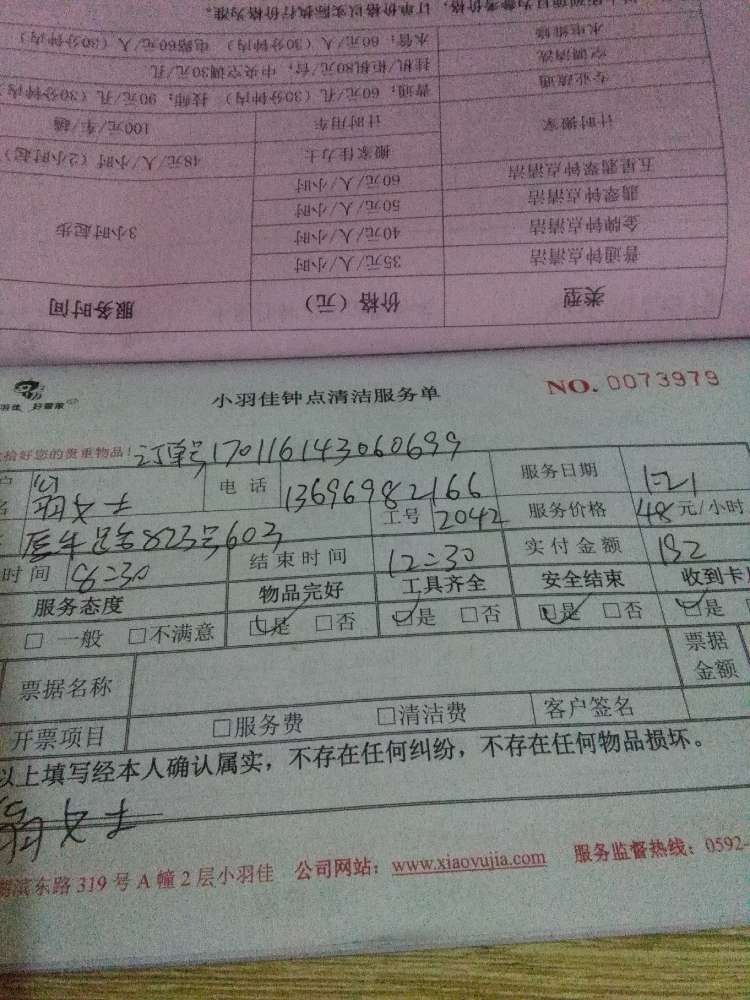 以实际执行价格为准。
水电维修 水管：60元/人（30分钟内） 电路60元/人（30分钟内）
空调清洗 挂机/柜机80元/台，中央空调30元/孔
专业疏通 普通：60元/孔（30分钟内） 技师：90元/孔（30分钟内）
计时搬家 计时用车 100元/车/趟
搬家佳力士 48元/人/小时（2小时起）
五星翡翠钟点清洁 60元/人/小时
翡翠钟点清洁 50元/人/小时 3小时起步
金牌钟点清洁 40元/人/小时
普通钟点清洁 35元/人/小时
类型 价格（元） 服务时间
好管家
小羽佳钟点清洁服务单 NO. 0073979
您的贵重物品！订单号170116143060699
电话 13696982166 服务日期 1-21
女士 工号 2042 服务价格 48元/小时
823号603
时间 8:30 结束时间 12:30 实付金额 192
服务态度 物品完好 工具齐全 安全结束 收到卡
□一般 □不满意 □是 □否 □是 □否 □是 □否 □是
票据名称 票据金额
开票项目 □服务费 □清洁费 客户签名
以上填写经本人确认属实，不存在任何纠纷，不存在任何物品损坏。
女士
滨东路319号A幢2层小羽佳 公司网站：www.xiaoyujia.com 服务监督热线：0592-